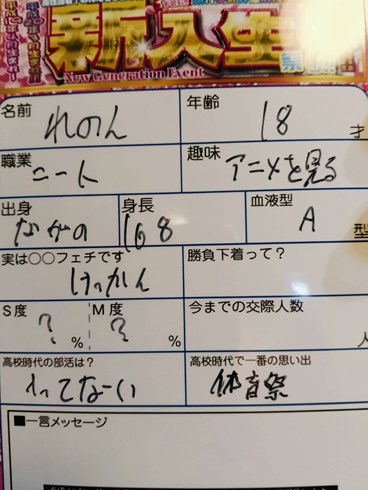 新入生
New Generation Event
名前 れのん
年齢 18 才
職業 ニート
趣味 アニメを見る
出身 ながの
身長 168
血液型 A 型
実は〇〇フェチです けっかん
勝負下着って?
S度 ? %
M度 ? %
今までの交際人数
高校時代の部活は? いってなーい
高校時代で一番の思い出 体育祭
■一言メッセージ